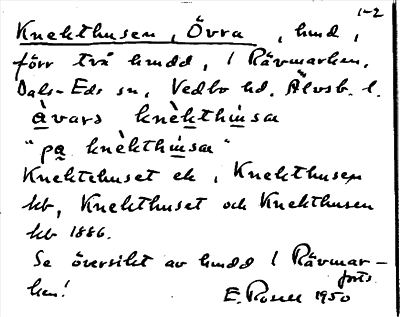 1-2
Knekthusen, Övra, hmd,
förr två hmdd, i Rävmarken,
Dals-Eds sn, Vedbo hd, Älvsb. l.
àvara knèkthu̇sa
"pa knèkthu̇sa"
Knektehuset ek, Knekthusen
kb, Knekthuset och Knekthusen
kb 1886.
Se översikt av hmdd i Rävmar-
ken! forts
E. Rosell 1950